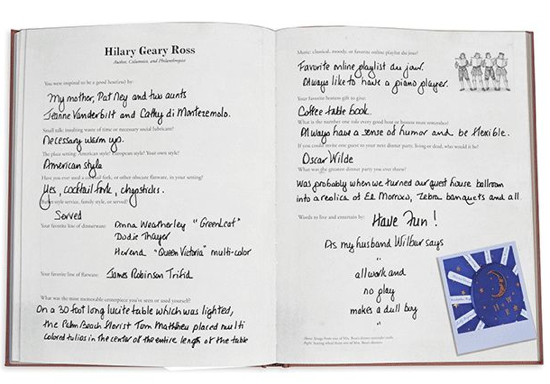 Hilary Geary Ross
Author, Columnist, and Philanthropist
You were inspired to be a good host(ess) by:
My mother, Pat Ney and two aunts
Jeanne Vanderbilt and Cathy di Montezemolo.
Small talk: insulting waste of time or necessary social lubricant?
Necessary warm up.
The place setting: American style? European style? Your own style?
American style
Have you ever used a cocktail fork, or other obscure flatware, in your setting?
Yes, cocktail fork, chopsticks.
style service, family style, or served?
Served
Your favorite line of dinnerware:
Anna Weatherley "Green Leaf"
Dodie Thayer
Herend "Queen Victoria" multi-color
Your favorite line of flatware:
James Robinson Trifid
What was the most memorable centerpiece you've seen or used yourself?
On a 30 foot long lucite table which was lighted,
the Palm Beach florist Tom Mathieu placed multi
colored tulips in the center of the entire length of the table
Music: classical, moody, or favorite online playlist du jour?
Favorite online playlist du jour.
Always like to have a piano player.
Your favorite hostess gift to give:
Coffee table book
What is the number one rule every good host or hostess must remember?
Always have a sense of humor and be flexible.
If you could invite one guest to your next dinner party, living or dead, who would it be?
Oscar Wilde
What was the greatest dinner party you ever threw?
Was probably when we turned our guest house ballroom
into a replica of El Morocco, Zebra banquets and all
Words to live and entertain by:
Have Fun!
As my husband Wilbur says
"
all work and
no play
makes a dull boy
"